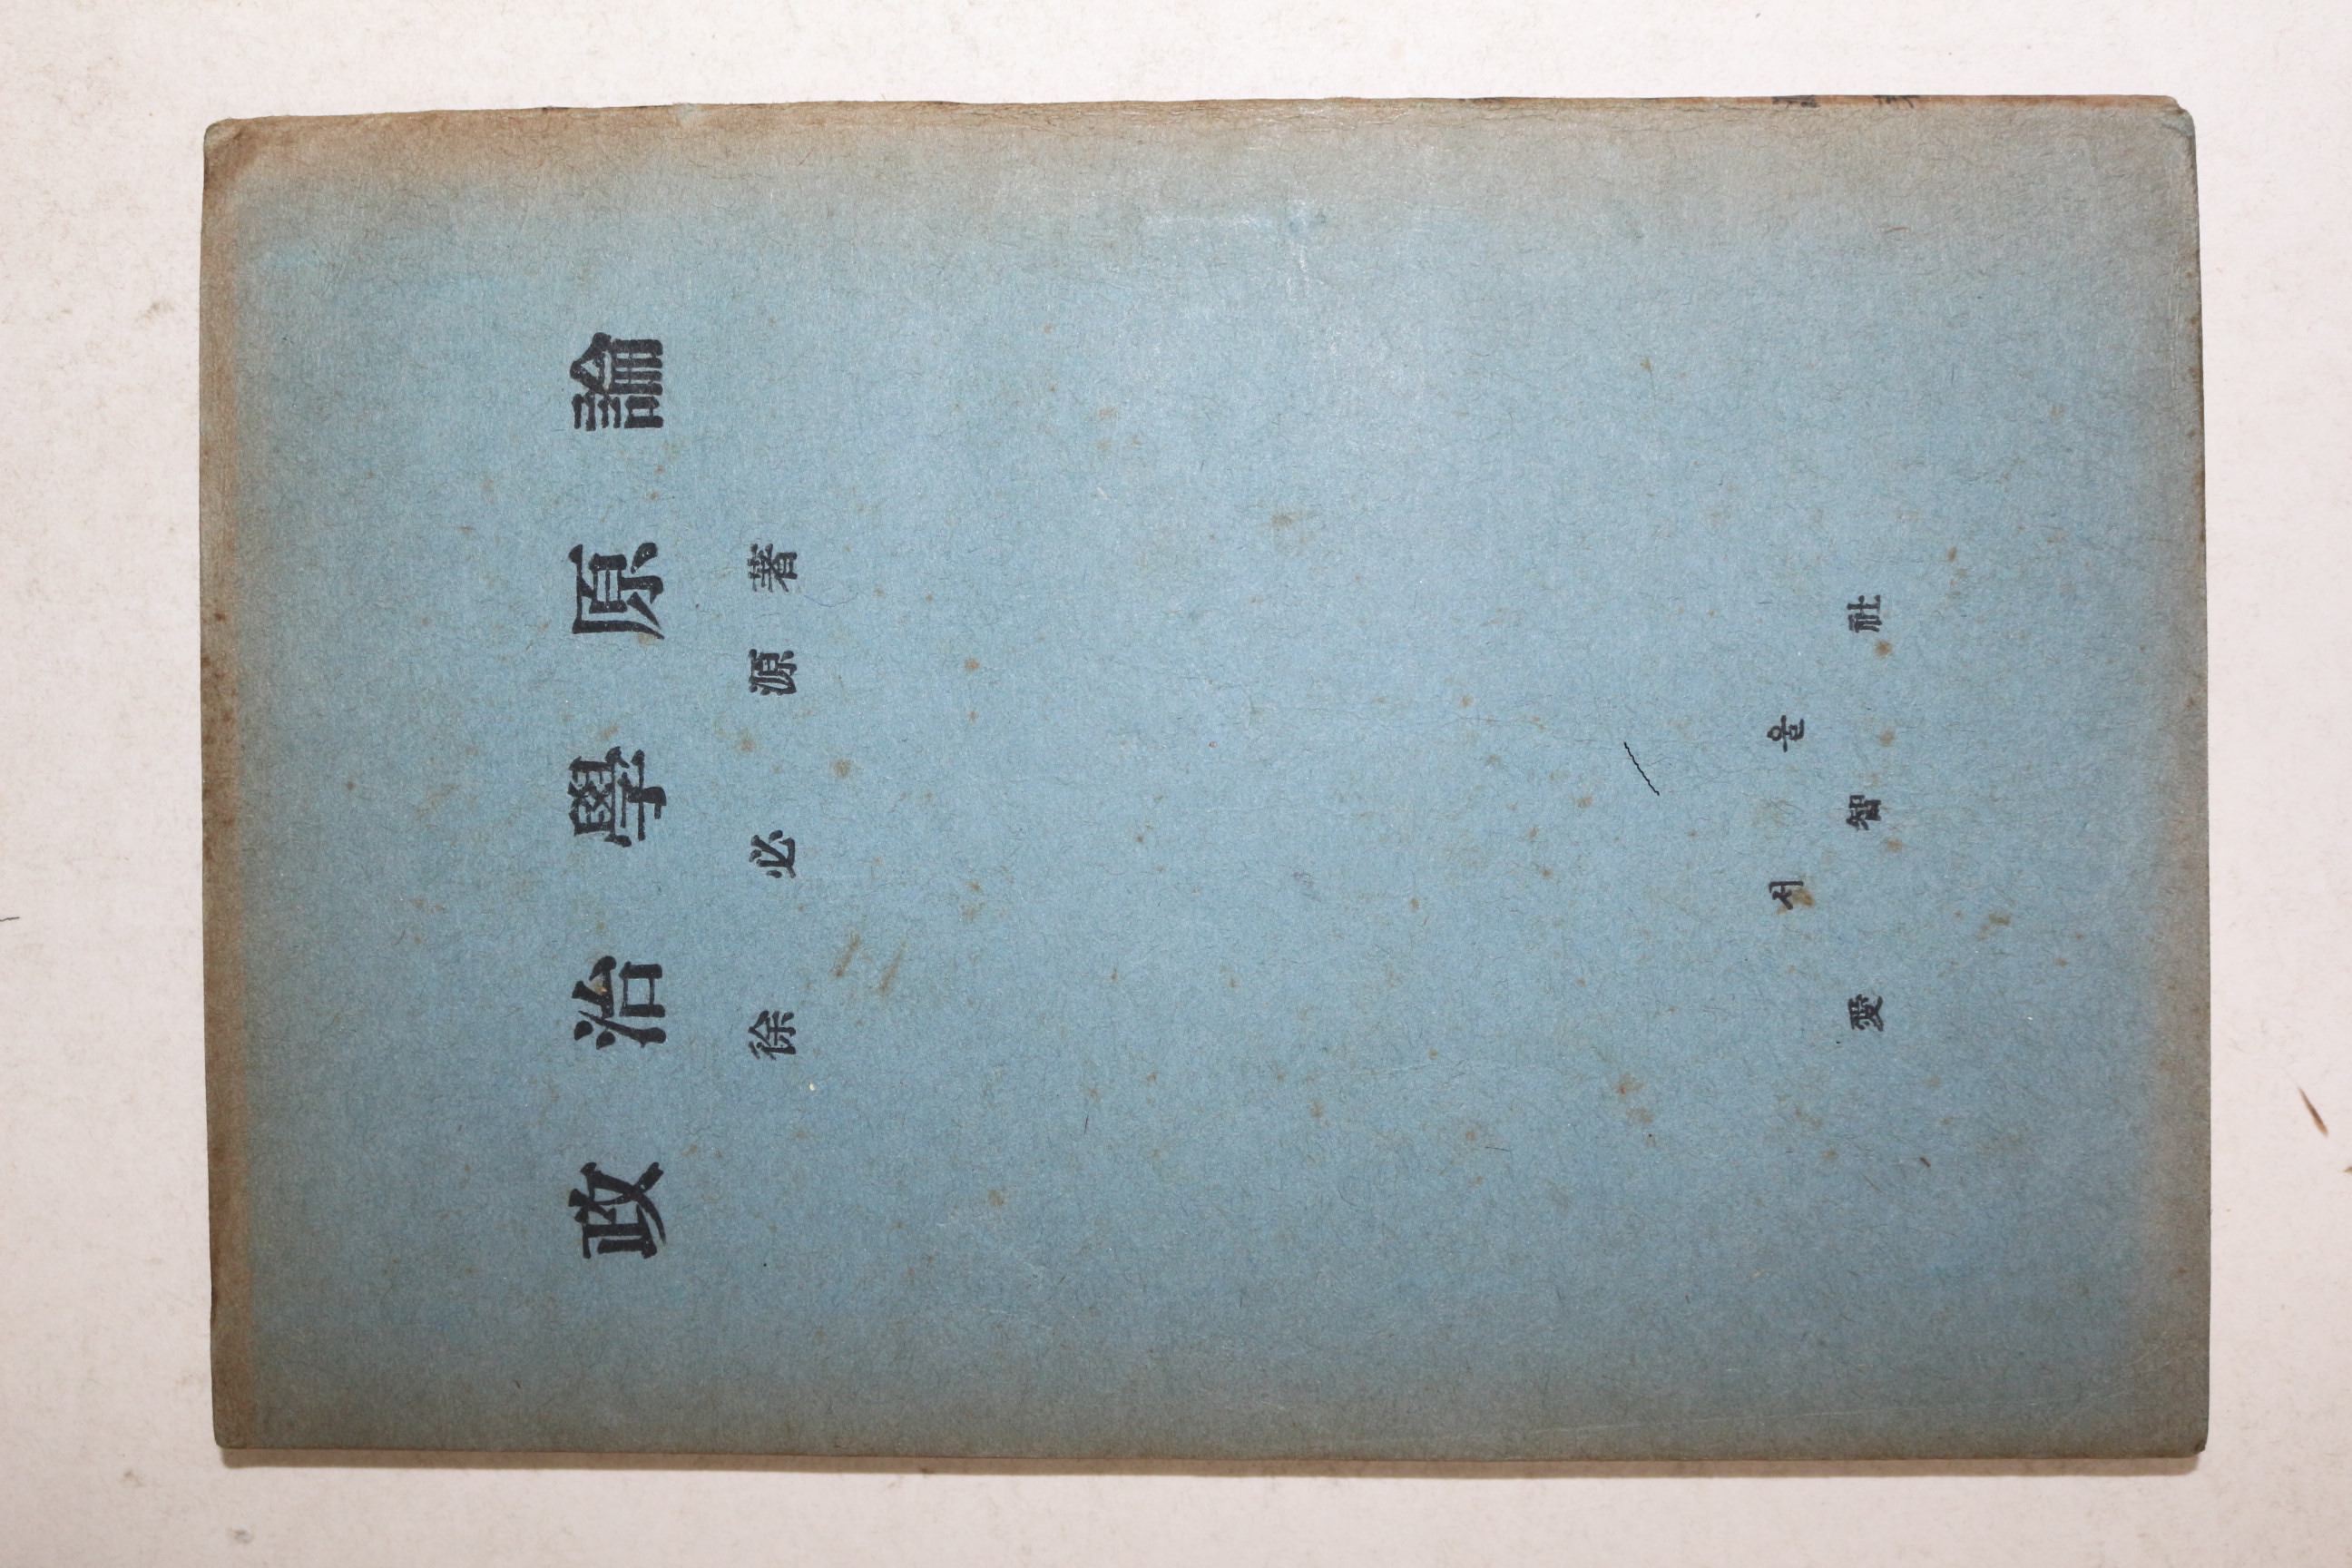 政治學原論
徐必源 著
서울
愛智社